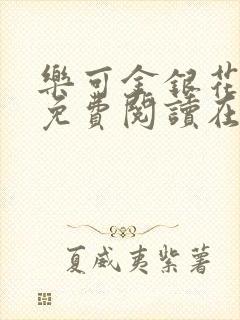 樂可金銀花
免費閱讀在
夏威夷紫薯